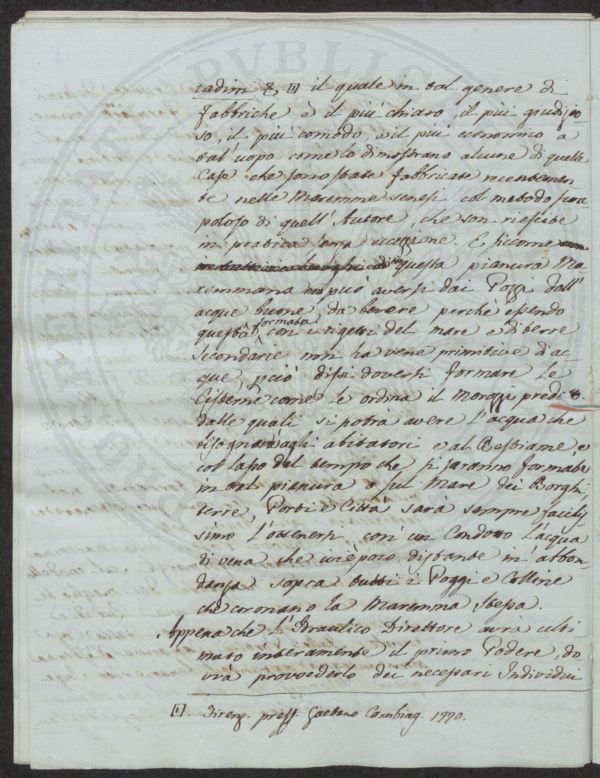 tadini &. [1] il quale in tal genere di
Fabbriche è il più chiaro, il più giudizio
so, il più comodo e il più economico a
tal'uopo come lo dimostrano alcune di quelle
Case che sono state fabbricate recentemen
te nelle Maremme senesi col metodo scru
poloso di quell'Autore, che son riescite
in pratica senza eccezione. E siccome
questa pianura Ma
remmana non può aversi dai Pozzi dell'
acque buone, da bevere perchè essendo
questa formata con i rigetti del mare e di terre
secondarie non ha vene primitive d'ac
que, perciò dissi doversi formare le
Cisterne come le ordina il Morozzi pred:º.
dalle quali si potrà avere l'acqua che
bisognerà agli abitatori e al Bestiame, e
col lasso del tempo che si saranno formate
in tal pianura o sul Mare dei Borghi,
terre, Porti e Città sarà sempre facilis
simo l'ottenersi con un Condotto l'acqua
di vena che ivi è poco distante in abbon
danza sopra tutti i Poggi e Colline
che coronano la Maremma stessa.
Appena che l'Idraulico Direttore avrà ulti
mato interamente il primo Podere, do
vrà provvederlo dei necessari Individui
[1]. Firenz. press. Gaetano Cambiag. 1770.